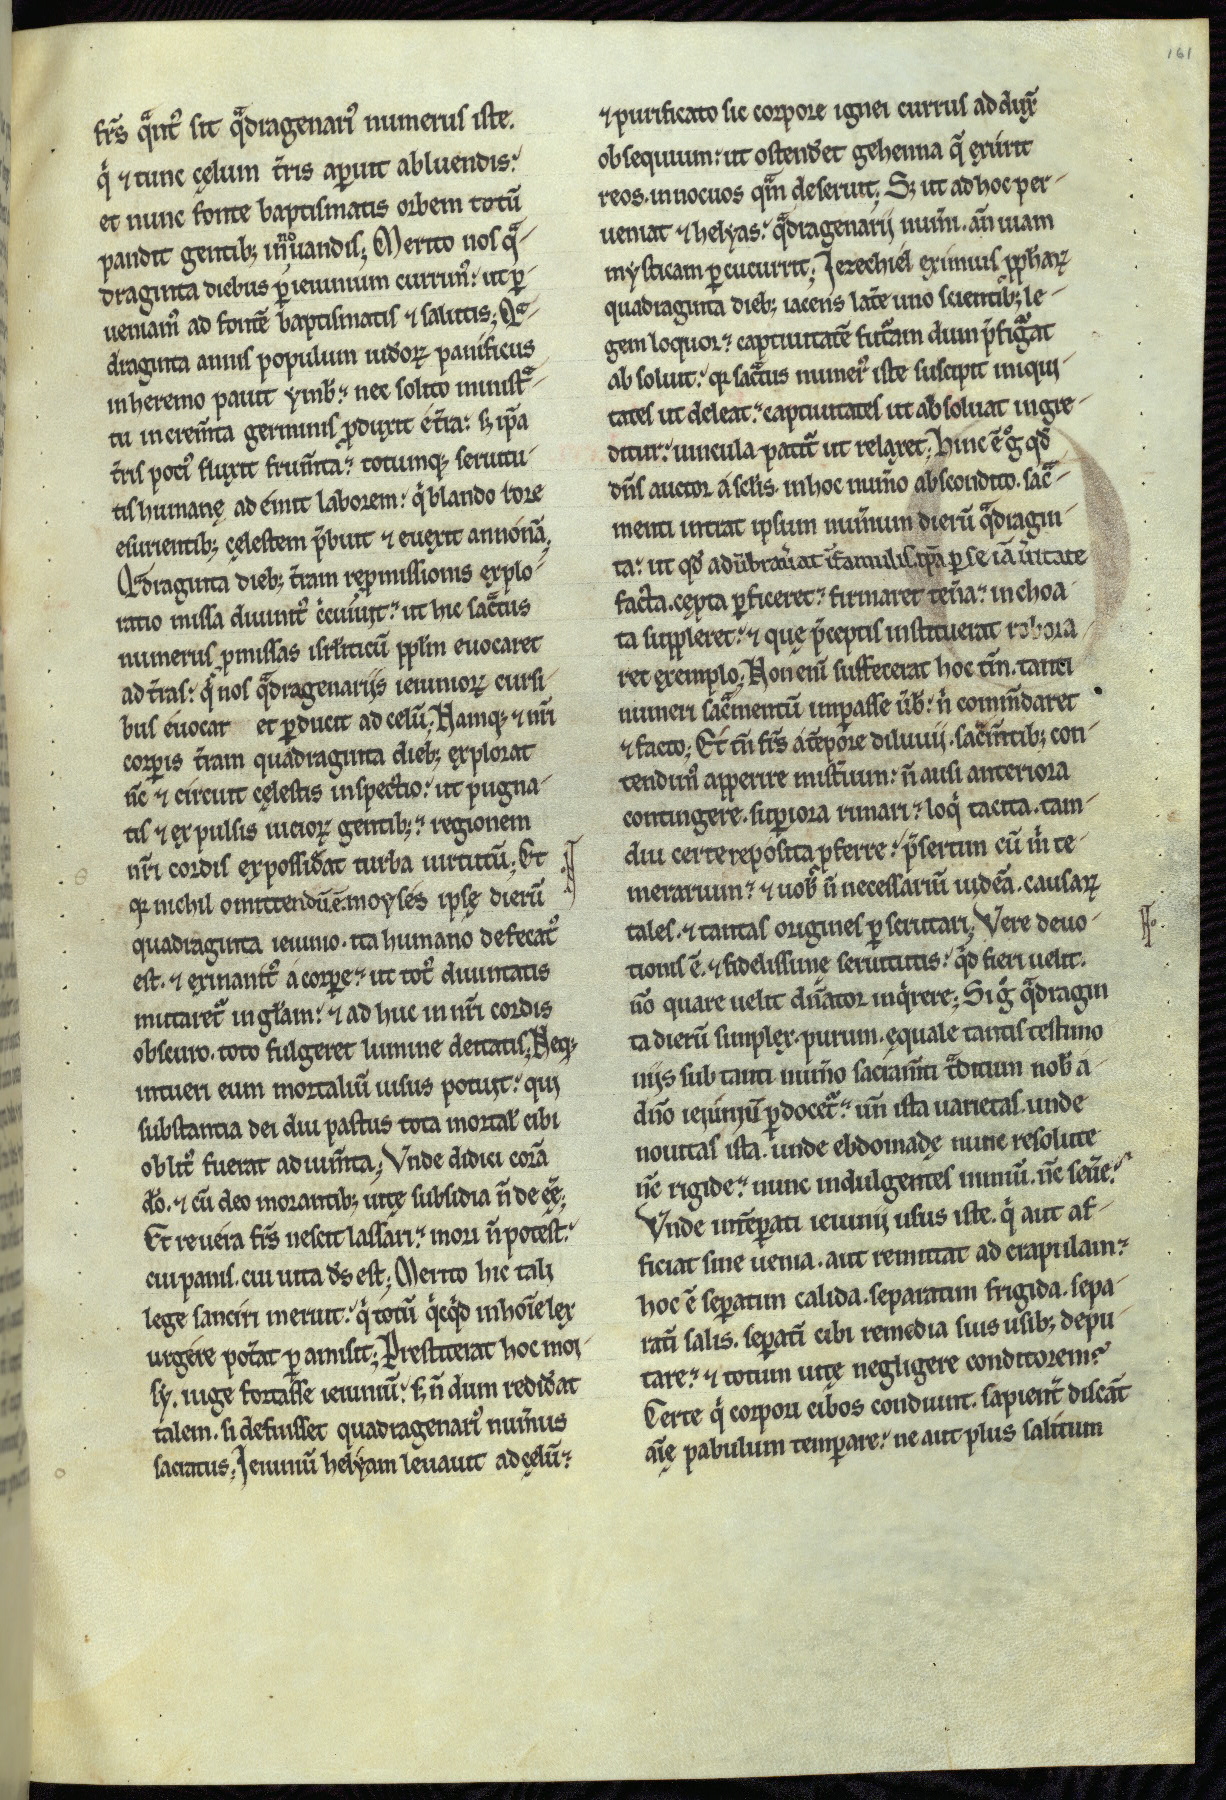 161
fr̄s qͣnt᷒ sit qͣdragenari᷒ numerus iste.
qͥ ⁊ tunc cęlum t̄ris aꝑuit abluendis.᷎
et nunc fonte baptismatis orbem totū
pandit gentib; inͦuandis; Merito nos qͣ-
draginta diebus ꝑ ieiunium currim᷒: ut ꝑ-
ueniam᷒ ad fontē baptismatis ⁊ salutis; Qͣ-
draginta annis populum iudeoꝝ panificus
in heremo pauit ymb᷒: nec solito ministͣ-
tu increm̄ta germinis ꝓduxit e t̄ra: s; ip̄a
t̄ris poti᷒ fluxit frum̄ta: totumq; seruitu-
tis humanę ademit laborem: qͥ blando rore
esurientib; cęlestem p̄buit ⁊ euexit annonā;
Qͣdraginta dieb; t̄ram repͥmissionis explo-
ratio missa diuinit᷒ cͥcuiuit: ut hic sac̄tus
numerus ꝓmissas isrl̓iticū pp̄lm euocaret
ad t̄ras: qͥ nos qͣdragenariis ieiunioꝝ cursi-
bus euocat et ꝑducit ad celū; Namq; ⁊ nr̄i
corꝑis t̄ram quadraginta dieb; explorat
nc̄ ⁊ circuit cęlestis inspectio: ut pugna-
tis ⁊ expulsis uicioꝝ gentib;: regionem
nr̄i cordis expossideat turba uirtutū; Et
qꝛ nichil omittendū ē: moyses ipse dierū
quadraginta ieiunio. ita humano defecat᷒
est. ⁊ exinanit᷒ a corꝑe: ut tot᷒ diuinitatis
mutaretͬ in gl̓iam: ⁊ ad huc in nr̄i cordis
obscuro. toto fulgeret lumine deitatis; Neq;
intueri eum mortaliū uisus potuit: qui
substantia dei diu pastus tota mortal̓ cibi
oblit᷒ fuerat adium̄ta; Vnde didici corā
do̅. ⁊ cū deo morantib; uitę subsidia n̄ deeē̄;
Et reuera fr̄s nescit lassari: mori n̄ potest:
cui panis. cui uita ds̄ est; Merito hic tali
lege sanciri meruit: qͥ totū qͥcqͥd in hoi̅e lex
urgere pot̄at ꝑ amisit; Prestiterat hoc moi-
sy. iuge fortasse ieiuniū: s; n̄ dum rediderat
talem. si defuisset quadragenari᷒ num̄us
sacratus; Ieiuniū helyam leuauit ad cęlū:
⁊ purificato sic corpore ignei currus adduxͭ
obsequium: ut ostenderet gehenna qͣ exurit
reos. innocuos qm̄ deseruit; S; ut ad hoc per-
ueniat ⁊ helyas: qͣdragenarii num̄. an̄ uiam
mysticam ꝑcucurrit; Iezechiel eximius ꝓph̄aꝝ
quadraginta dieb; iacens lat̄e uno scientib; le-
gem loquor: captiuitatē futͣam dum p̄figͣat
absoluit: qꝛ sac̄tus numer᷒ iste suscipit iniqui-
tates ut deleat: captiuitates ut absoluat ingre-
ditur: uincula patitͬ ut relaxet; Hinc ē gͦ qd̓
dn̄s auctor a sclis. in hoc num̄o abscondito. sac̄-
menti intrat ipsum num̄um dierū qͣdragin-
ta: ut qd̓ adūbrauerat in famulis. ip̄a ꝑ se iā ūitate
facta. cępta ꝑficeret: firmaret ten̄a: inchoa
ta suppleret: ⁊ quę p̄ceptis instituerat robora
ret exemplo; Non eni̅ suffecerat hoc tm̄. tanti
muneri sac̄mentū imꝑasse ūb̓: n̄ com̄daret
⁊ facto; Et tn̄ fr̄s a tēpore diluuii. sac̄m̄tib; con-
tendim᷒ apperire mist̄ium: n̄ ausi anteriora
contingere. suꝑiora rimari: loqͥ tacita. tam-
diu certe reposita ꝓferre: p̄sertim cū m̊ te-
merarium: ⁊ uob̓ n̄ necessariū uideā. causaꝝ
tales. ⁊ tantas origines ꝑscrutari; Vere deuo-
tionis ē. ⁊ fidelissimę seruitutis: qd̓ fieri uelit.
n̄o quare uelit dn̄ator inqͥrere; Si gͦ qͣdragin
ta dierū simplex. purum. equale tantis testimo
niis sub tanti num̄o sacram̄ti tͣditum nob̓ a-
dn̄o ieiuniū ꝑdocetͬ: un̄ ista uarietas. unde
nouitas ista. unde ebdomade nunc resolute
nc̄ rigide: nunc indulgentes nimiū. nc̄ seūe:
Vnde intēꝑati ieiunii usus iste. qͥ aut af-
ficiat sine uenia. aut remittat ad crapulam:
hoc ē seꝑatim calida. separatim frigida. sepa-
rati̅ salis. seꝑati̅ cibi remedia suis usib; depu-
tare: ⁊ totum uitę negligere conditorem:
Certe qͥ corpori cibos condiunt. sapient̄ discāt
aīę pabulum temꝑare: ne aut plus salitum